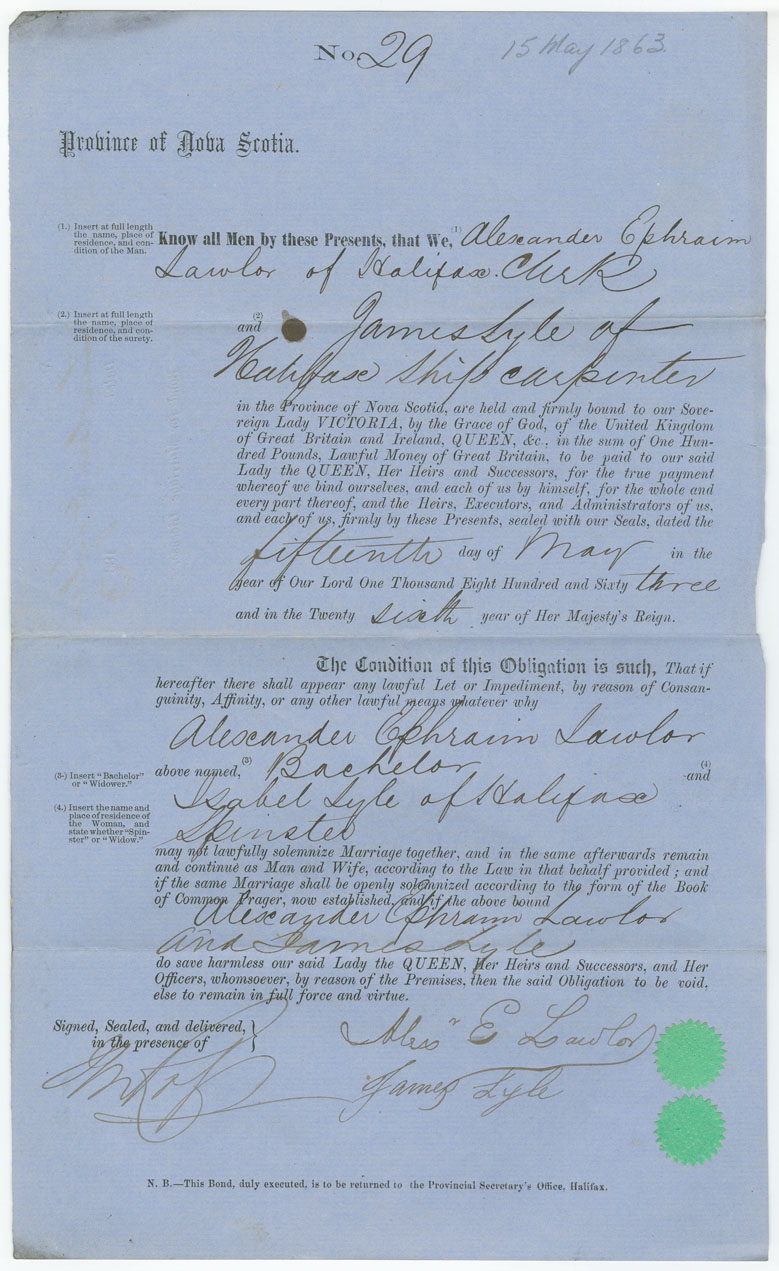 No. 29
15 May 1863.
Province of Nova Scotia.
(1.) Insert at full length
the name, place of
residence, and con-
dition of the Man.
Know all Men by these Presents, that We, (1) Alexander Ephraim
Lawlor of Halifax. Clerk
(2.) Insert at full length
the name, place of
residence, and con-
dition of the surety.
and (2) James Lyle of
Halifax Ship carpenter
in the Province of Nova Scotia, are held and firmly bound to our Sove-
reign Lady VICTORIA, by the Grace of God, of the United Kingdom
of Great Britain and Ireland, QUEEN, &c., in the sum of One Hun-
dred Pounds, Lawful Money of Great Britain, to be paid to our said
Lady the QUEEN, Her Heirs and Successors, for the true payment
whereof we bind ourselves, and each of us by himself, for the whole and
every part thereof, and the Heirs, Executors, and Administrators of us,
and each of us, firmly by these Presents, sealed with our Seals, dated the
fifteenth day of May in the
year of Our Lord One Thousand Eight Hundred and Sixty three
and in the Twenty sixth year of Her Majesty's Reign.
The Condition of this Obligation is such, That if
hereafter there shall appear any lawful Let or Impediment, by reason of Consan-
guinity, Affinity, or any other lawful means whatever why
Alexander Ephraim Lawlor
above named, (3) Bachelor (4) and
(3.) Insert "Bachelor"
or "Widower."
Isabel Lyle of Halifax
Spinster
(4.) Insert the name and
place of residence of
the Woman, and
state whether "Spin-
ster" or "Widow."
may not lawfully solemnize Marriage together, and in the same afterwards remain
and continue as Man and Wife, according to the Law in that behalf provided; and
if the same Marriage shall be openly solemnized according to the form of the Book
of Common Prager, now established, and if the above bound
Alexander Ephraim Lawlor
and James Lyle
do save harmless our said Lady the QUEEN, Her Heirs and Successors, and Her
Officers, whomsoever, by reason of the Premises, then the said Obligation to be void,
else to remain in full force and virtue.
Signed, Sealed, and delivered,
in the presence of
Alexr E Lawlor
James Lyle
N. B.—This Bond, duly executed, is to be returned to the Provincial Secretary's Office, Halifax.